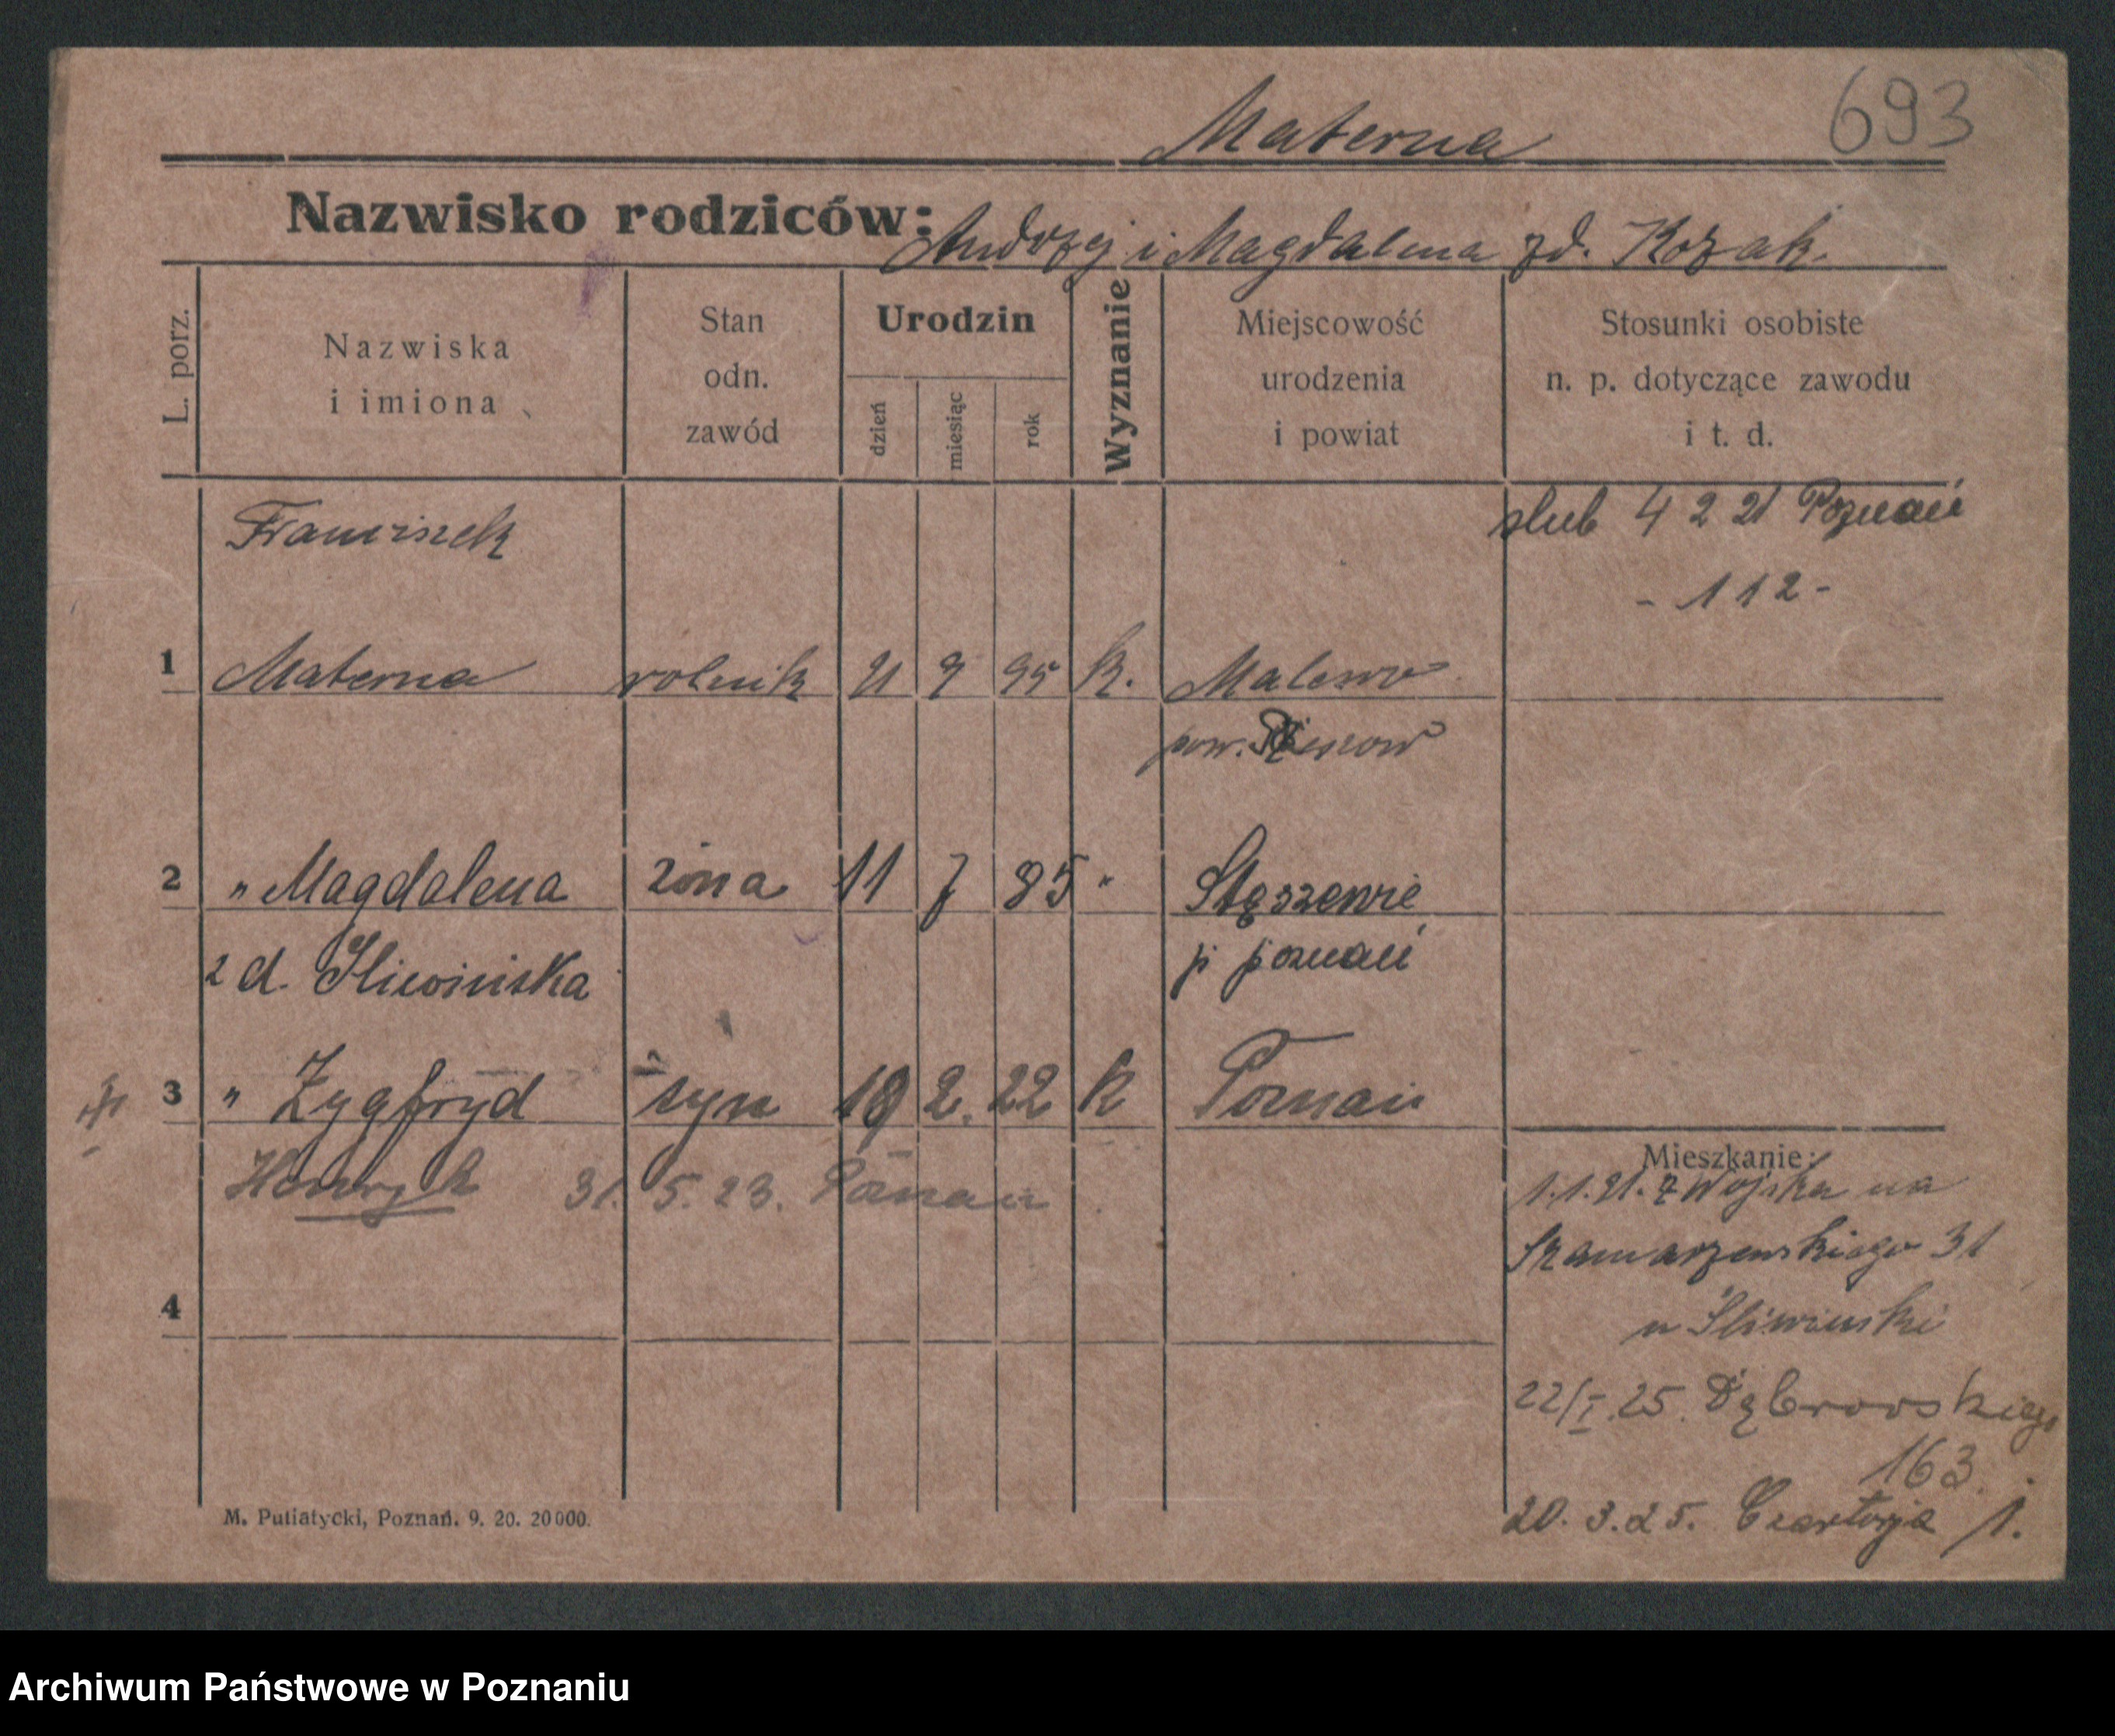 Materna 693
Nazwisko rodziców: Andrzej i Magdalena zd. Kozak.
L. porz.
Nazwiska
i imiona
Stan
odn.
zawód
Urodzin
dzień
miesiąc
rok
Wyznanie
Miejscowość
urodzenia
i powiat
Stosunki osobiste
n. p. dotyczące zawodu
i t. d.
Franciszek
ślub 4 2 21 Poznań
- 112 -
1 Materna rolnik 21 9 95 k. Malewo
pow.
2 " Magdalena żona 11 7 85 " Stęszewie
zd. Śliwińska p poznań
3 " Zygfryd syn 19 2. 22 k Poznań
Henryk 31. 5. 23. Poznań
Mieszkanie:
1.1.21. z Wojska na
Szamarzewskiego 31
u Śliwinski
4
22/I.25. Dąbrowskiego
163.
20. 3. 25. Czartorja 1.
M. Putiatycki, Poznań. 9. 20. 20000.
Archiwum Państwowe w Poznaniu